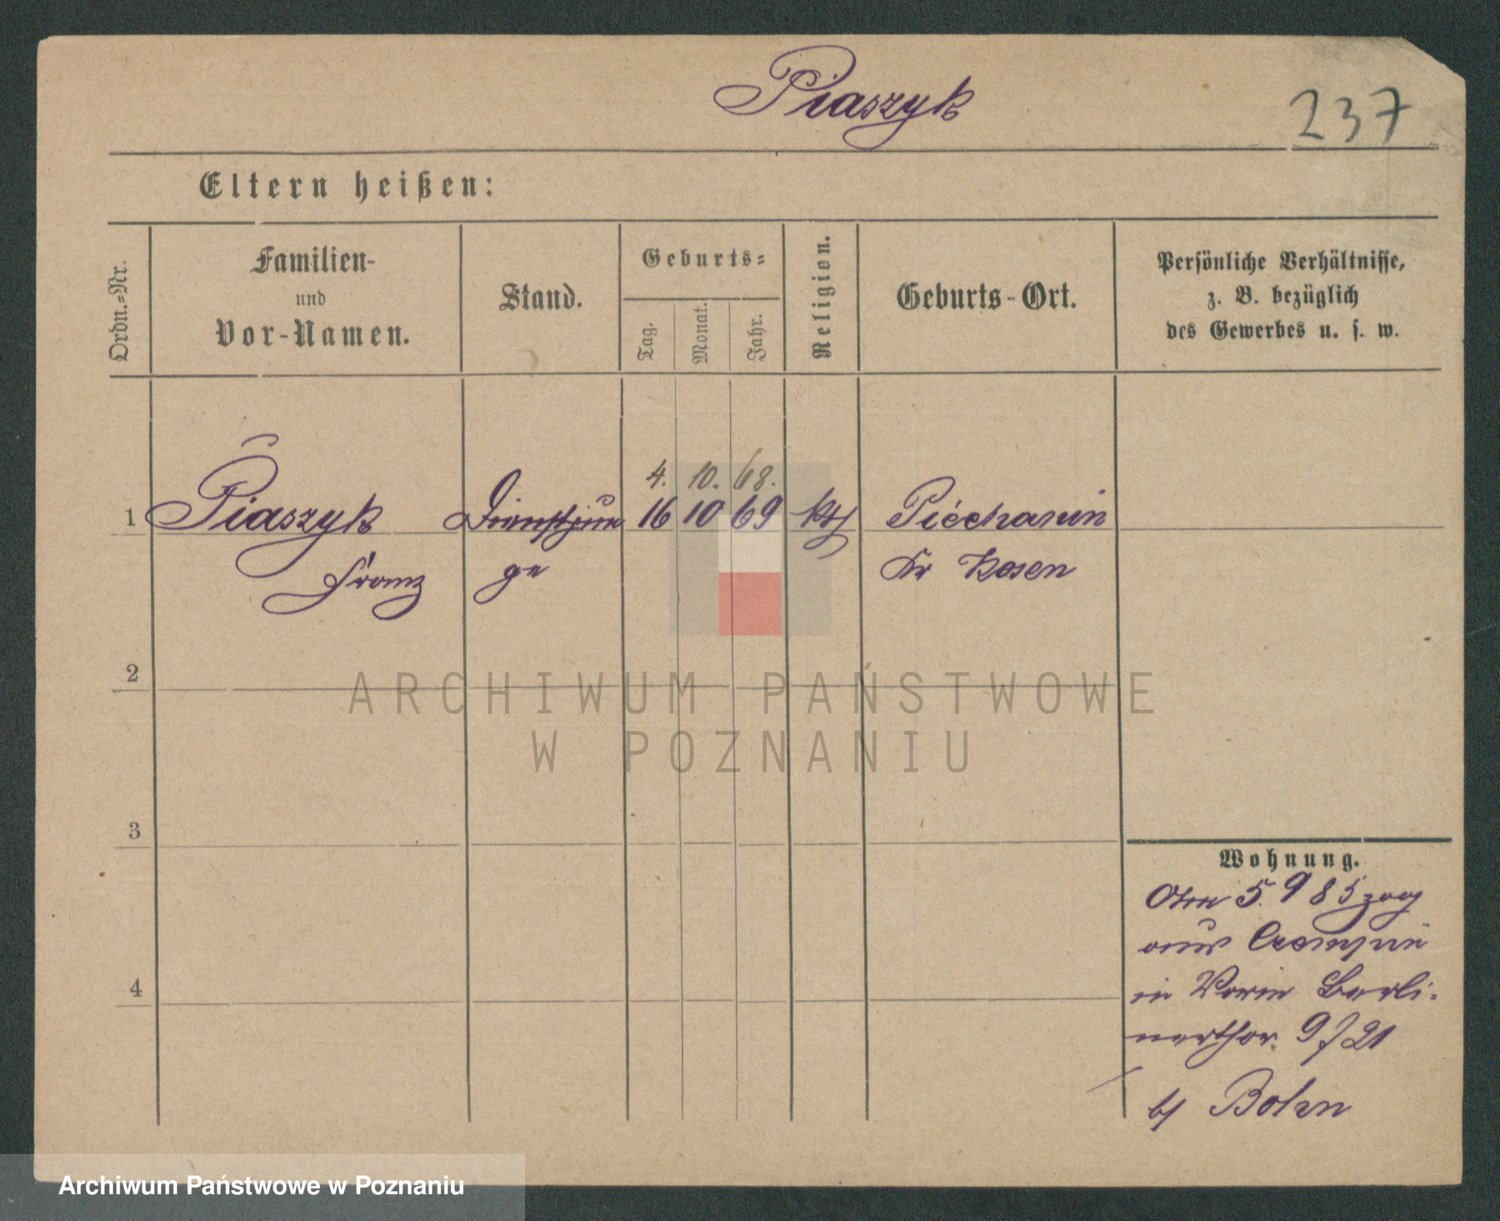 Piaszyk
237
Eltern heißen:
Ordn.-Nr.
Familien-
und
Vor-Namen.
Stand.
Geburts-
Tag.
Monat.
Jahr.
Religion.
Geburts-Ort.
Persönliche Verhältnisse,
z. B. bezüglich
des Gewerbes u. s. w.
4. 10. 68.
1 Piaszyk Dienstjun 16 10 69 kth Piechanin
Franz ge Kr Kosen
2
ARCHIWUM PAŃSTWOWE
W POZNANIU
3
Wohnung.
5. 9 85 zog
aus Czempin
in Berli-
nerthor 9/21
b/ Bohn
4
Archiwum Państwowe w Poznaniu